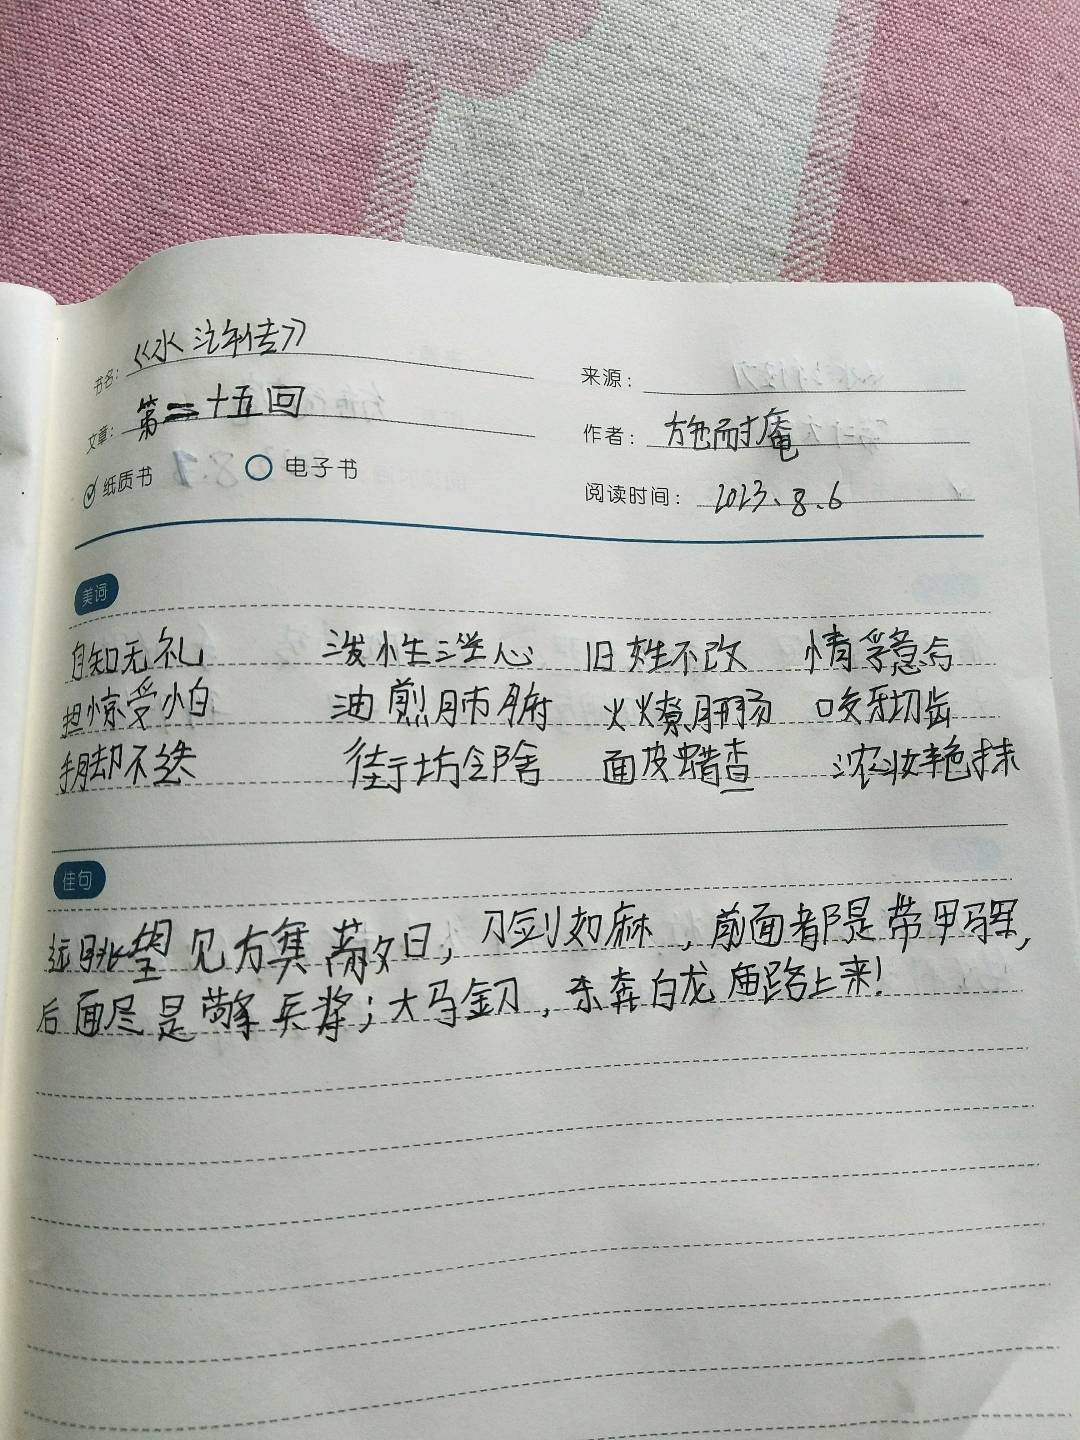 书名：《水浒传》
来源：
文章：第二十五回
作者：施耐庵
纸质书 电子书
阅读时间：2023.8.6
美词
自知无礼 泼性淫心 旧姓不改 情孚意合
担惊受怕 油煎肺腑 火燎肝肠 咬牙切齿
推却不迭 街坊全除 面皮蜡查 浓妆艳抹
佳句
远眺望见方集 日，刀剑如麻，前面都是带甲马军，
后面尽是 兵浆；大马金刀，东奔白龙庙路上来！